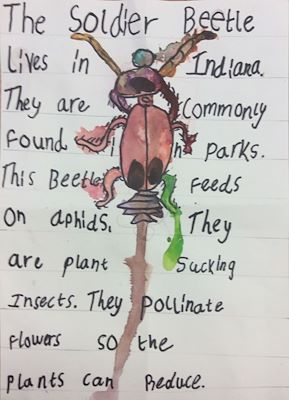 The Soldier Beetle
Lives in Indiana.
They are commonly
found in parks.
This Beetle feeds
on aphids. They
are plant sucking
insects. They pollinate
flowers so the
plants can Reduce.